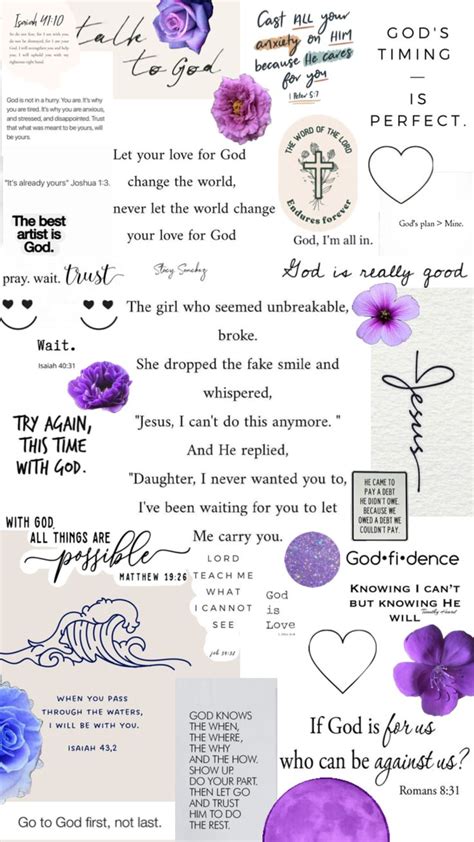 Isaiah 41:10
So do not fear, for I am with you;
do not be dismayed, for I am your
God. I will strengthen you and help
you; I will uphold you with my
righteous right hand.
talk
to God
Cast ALL your
anxiety on HIM
because He cares
for you
1 Peter 5:7
GOD'S
TIMING
—
IS
PERFECT.
God is not in a hurry. You are. It's why
you are tired. It's why you are anxious,
and stressed, and disappointed. Trust
that what was meant to be yours, will
be yours.
"It's already yours" Joshua 1:3.
Let your love for God
change the world,
never let the world change
your love for God
THE WORD OF THE LORD
Endures forever
The best
artist is
God.
God, I'm all in.
God's plan > Mine.
pray. wait. trust
Stacy Sanchez
God is really good
Wait.
Isaiah 40:31
The girl who seemed unbreakable,
broke.
She dropped the fake smile and
whispered,
"Jesus, I can't do this anymore. "
And He replied,
"Daughter, I never wanted you to,
I've been waiting for you to let
Me carry you.
Jesus
TRY AGAIN,
THIS TIME
WITH GOD.
HE CAME TO
PAY A DEBT
HE DIDN'T OWE,
BECAUSE WE
OWED A DEBT WE
COULDN'T PAY.
WITH GOD,
ALL THINGS ARE
possible
MATTHEW 19:26
LORD
TEACH ME
WHAT
I CANNOT
SEE
job 34:32
God
is
Love
God•fi•dence
Knowing I can't
but knowing He
will
WHEN YOU PASS
THROUGH THE WATERS,
I WILL BE WITH YOU.
ISAIAH 43,2
GOD KNOWS
THE WHEN,
THE WHERE,
THE WHY
AND THE HOW.
SHOW UP.
DO YOUR PART.
THEN LET GO
AND TRUST
HIM TO DO
THE REST.
If God is for us
who can be against us?
Romans 8:31
Go to God first, not last.